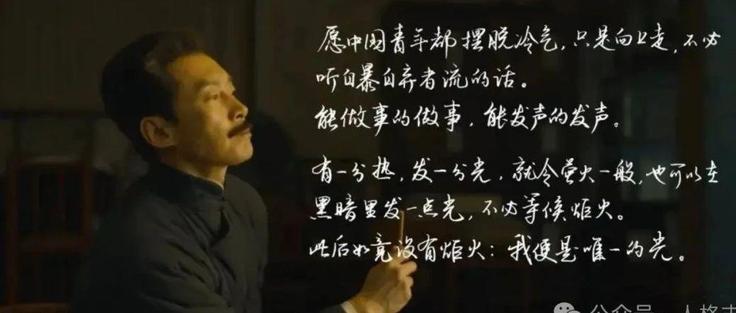 愿中国青年都摆脱冷气，只是向上走，不必
听自暴自弃者流的话。
能做事的做事，能发声的发声。
有一分热，发一分光，就令萤火一般，也可以在
黑暗里发一点光，不必等候炬火。
此后如竟没有炬火：我便是唯一的光。
公众号